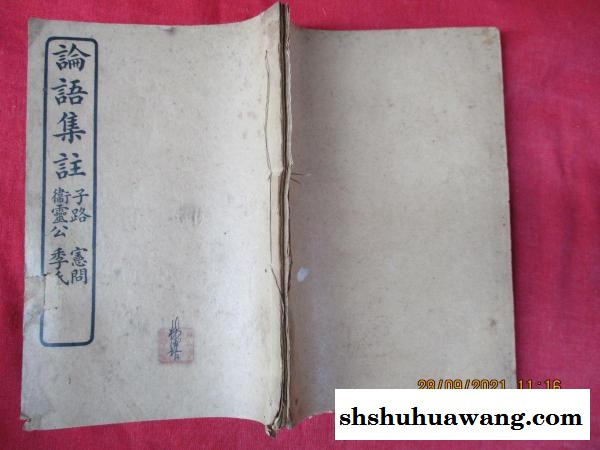 論語集註
子路 憲問
衞靈公 季氏
28/09/2021 11:16
shshuhuawang.com